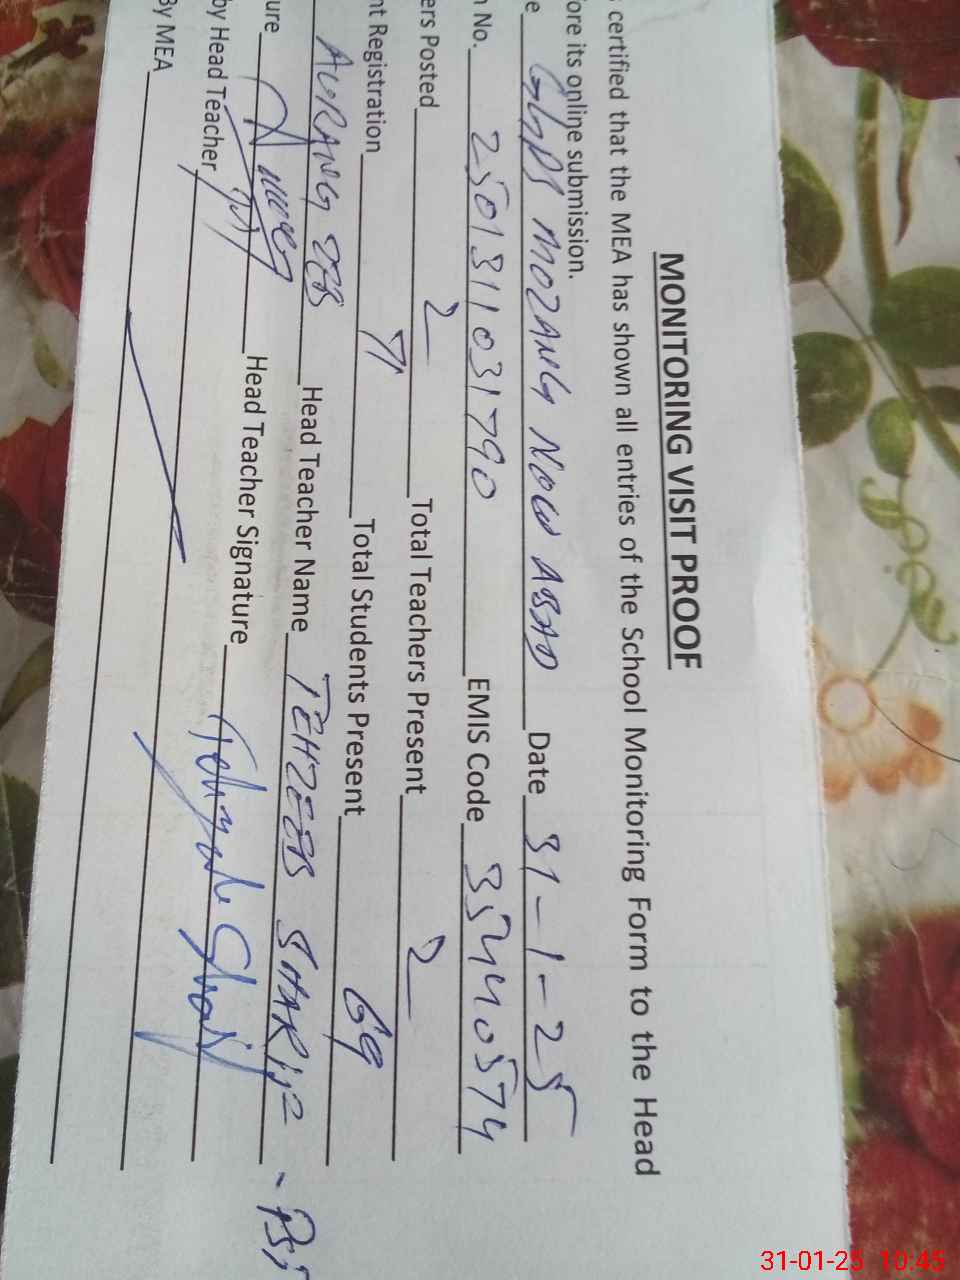 MONITORING VISIT PROOF
certified that the MEA has shown all entries of the School Monitoring Form to the Head
ore its online submission.
e GGPS MOZANG NOW ABAD Date 31-1-25
No. 2501311031790 EMIS Code 35440574
ers Posted 2 Total Teachers Present 2
nt Registration 71 Total Students Present 69
AURANG ZEB Head Teacher Name TEHZEEB SHARIF - PST
ure Head Teacher Signature
by Head Teacher
By MEA
31-01-25 10:45